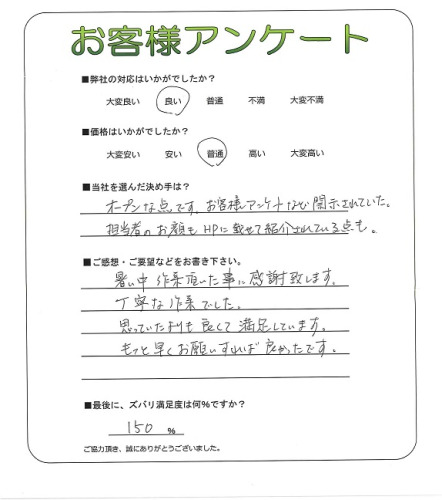 お客様アンケート
■弊社の対応はいかがでしたか?
大変良い 良い 普通 不満 大変不満
■価格はいかがでしたか?
大変安い 安い 普通 高い 大変高い
■当社を選んだ決め手は?
オープンな点です。お客様アンケートなど開示されていた。
担当者のお顔もHPに載せて紹介されている点も。
■ご感想・ご要望などをお書き下さい。
暑い中 作業頂いた事に感謝致します。
丁寧な作業でした。
思っていたよりも良くて満足しています。
もっと早くお願いすれば良かったです。
■最後に、ズバリ満足度は何%ですか?
150 %
ご協力頂き、誠にありがとうございました。